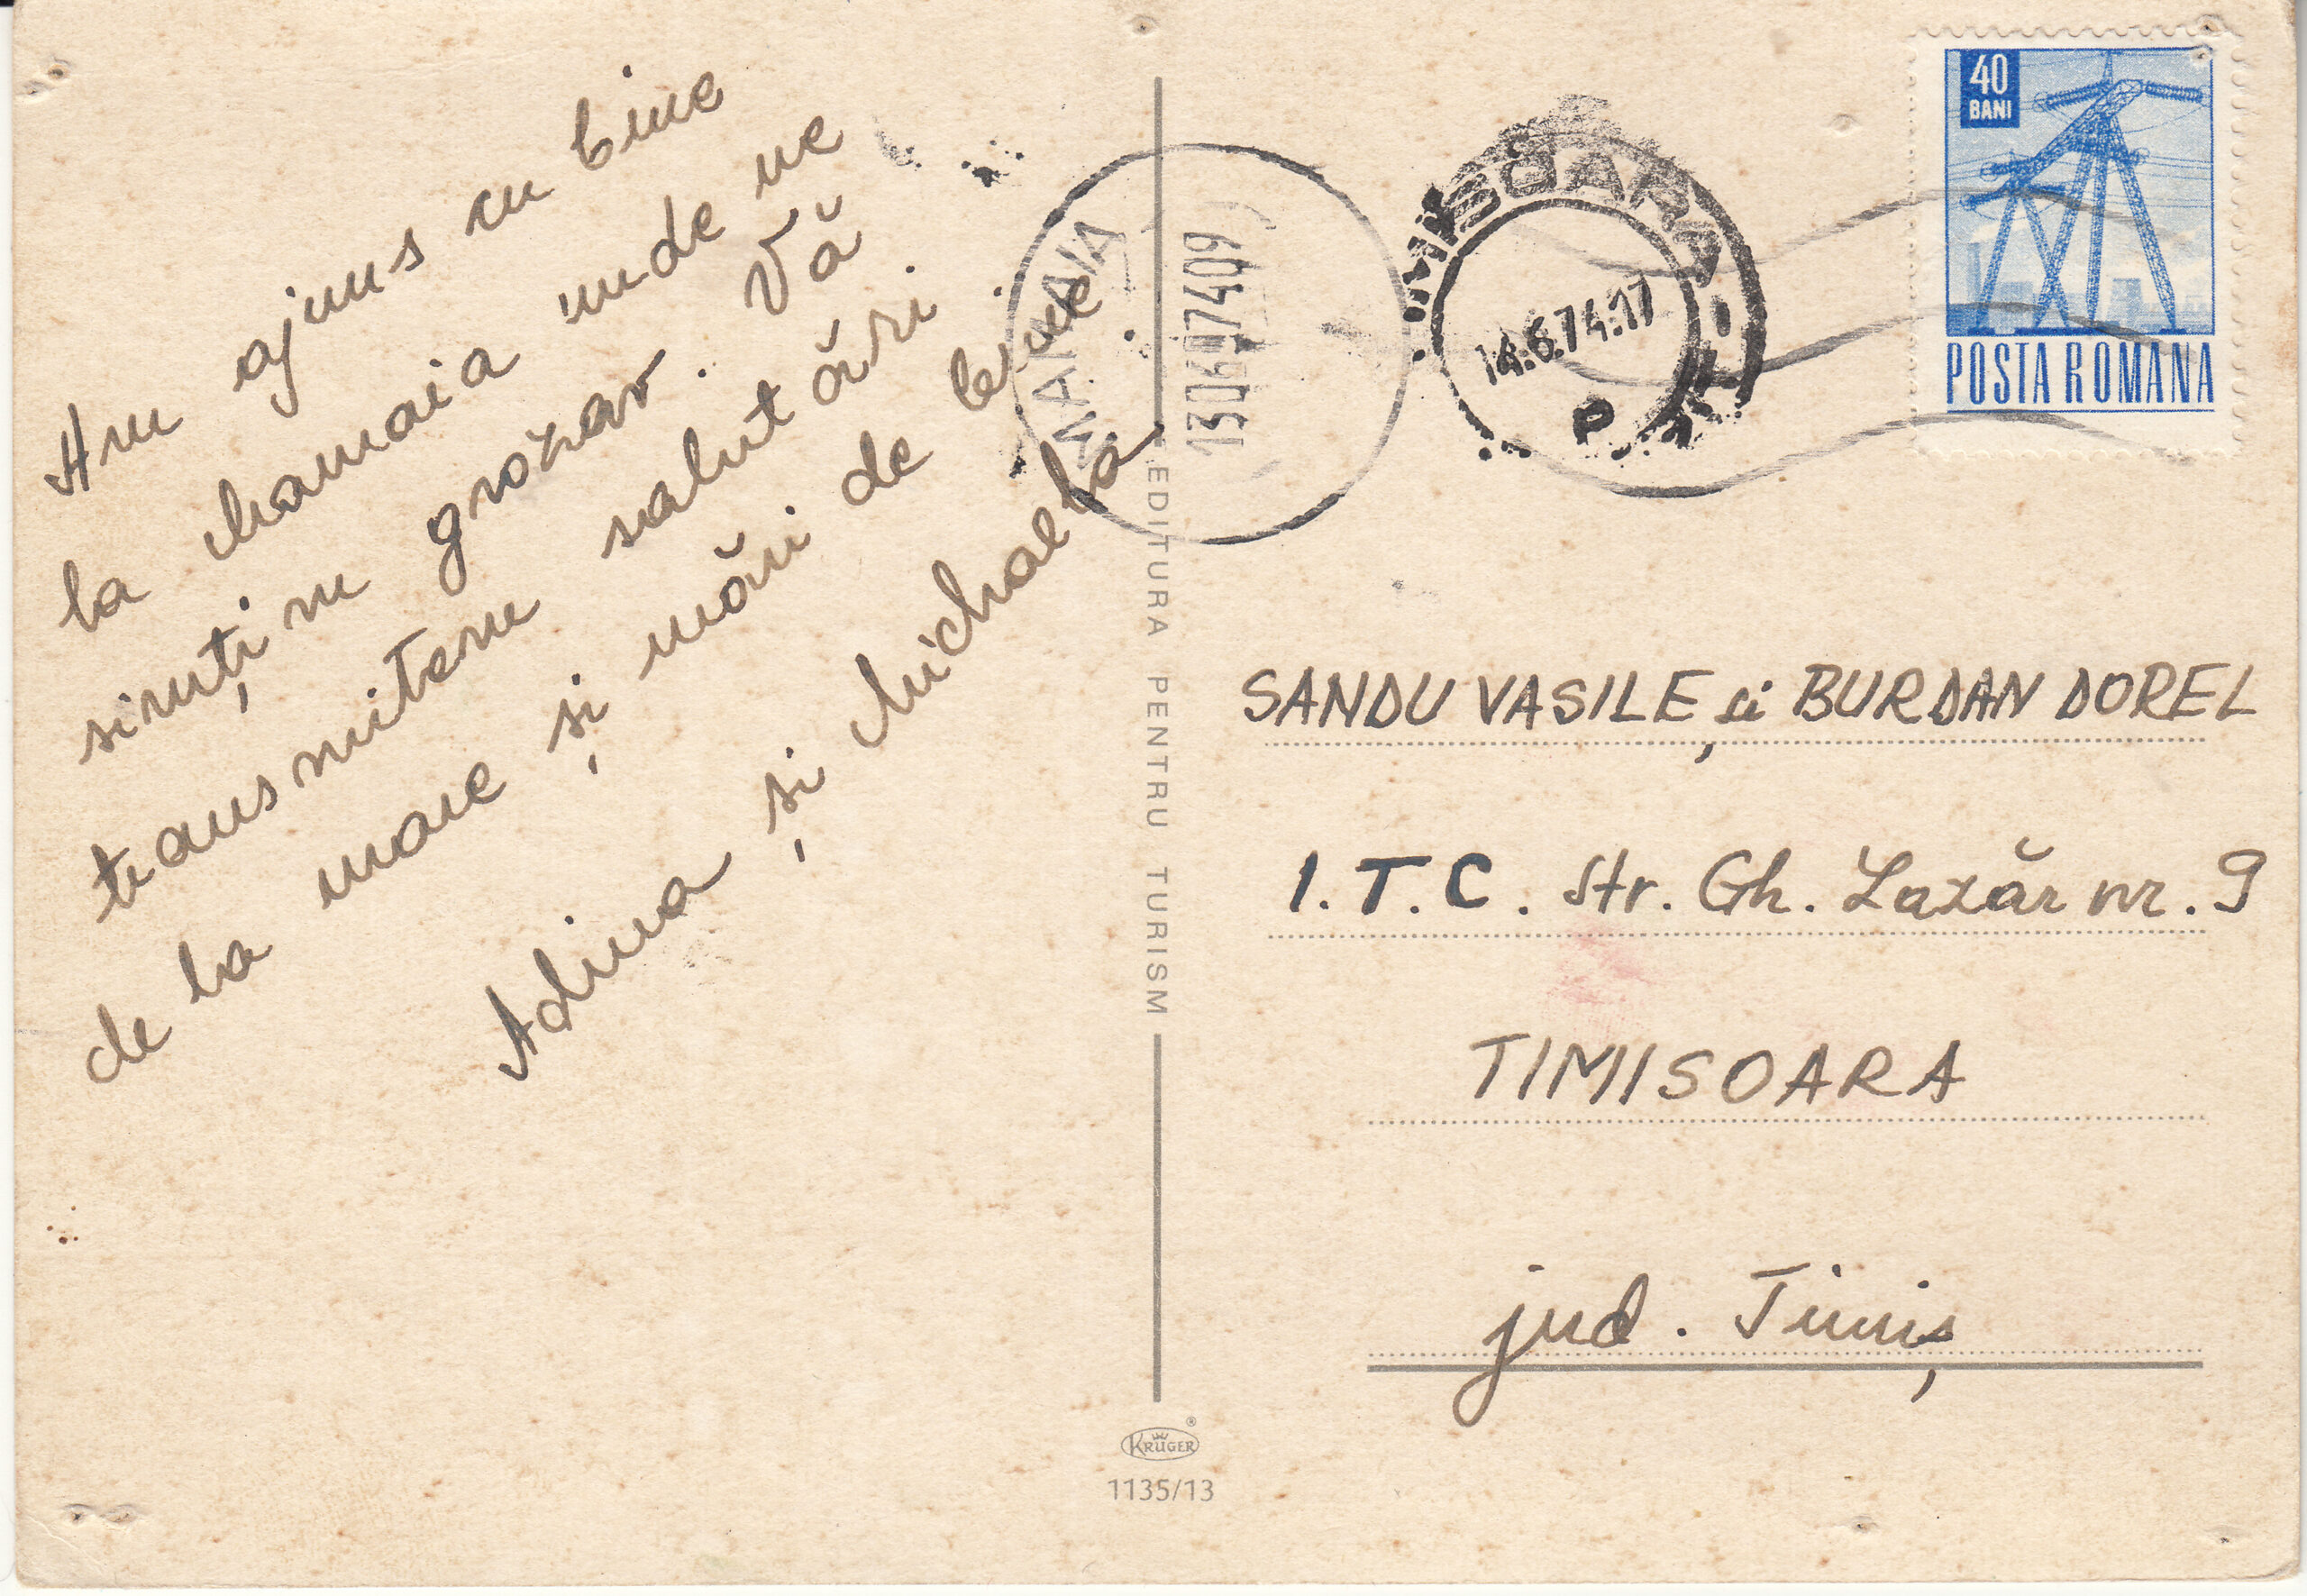 Am ajuns cu bine
la Mamaia unde ne
simțim grozav. Vă
transmitem salutări
de la mare și mări de bine
Adina și Michaela
MAMAIA
13 06 74 09
TIMISOARA
14.6.74.17
P
40
BANI
POSTA ROMANA
EDITURA PENTRU TURISM
SANDU VASILE și BURDAN DOREL
I.T.C. Str. Gh. Lazăr nr. 9
TIMISOARA
jud. Timiș
KRÜGER ®
1135/13